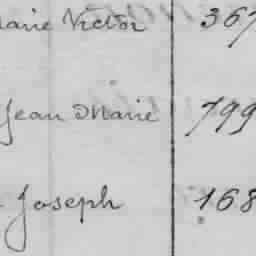 Marie Victor 367
Jean Marie 799
Joseph 168